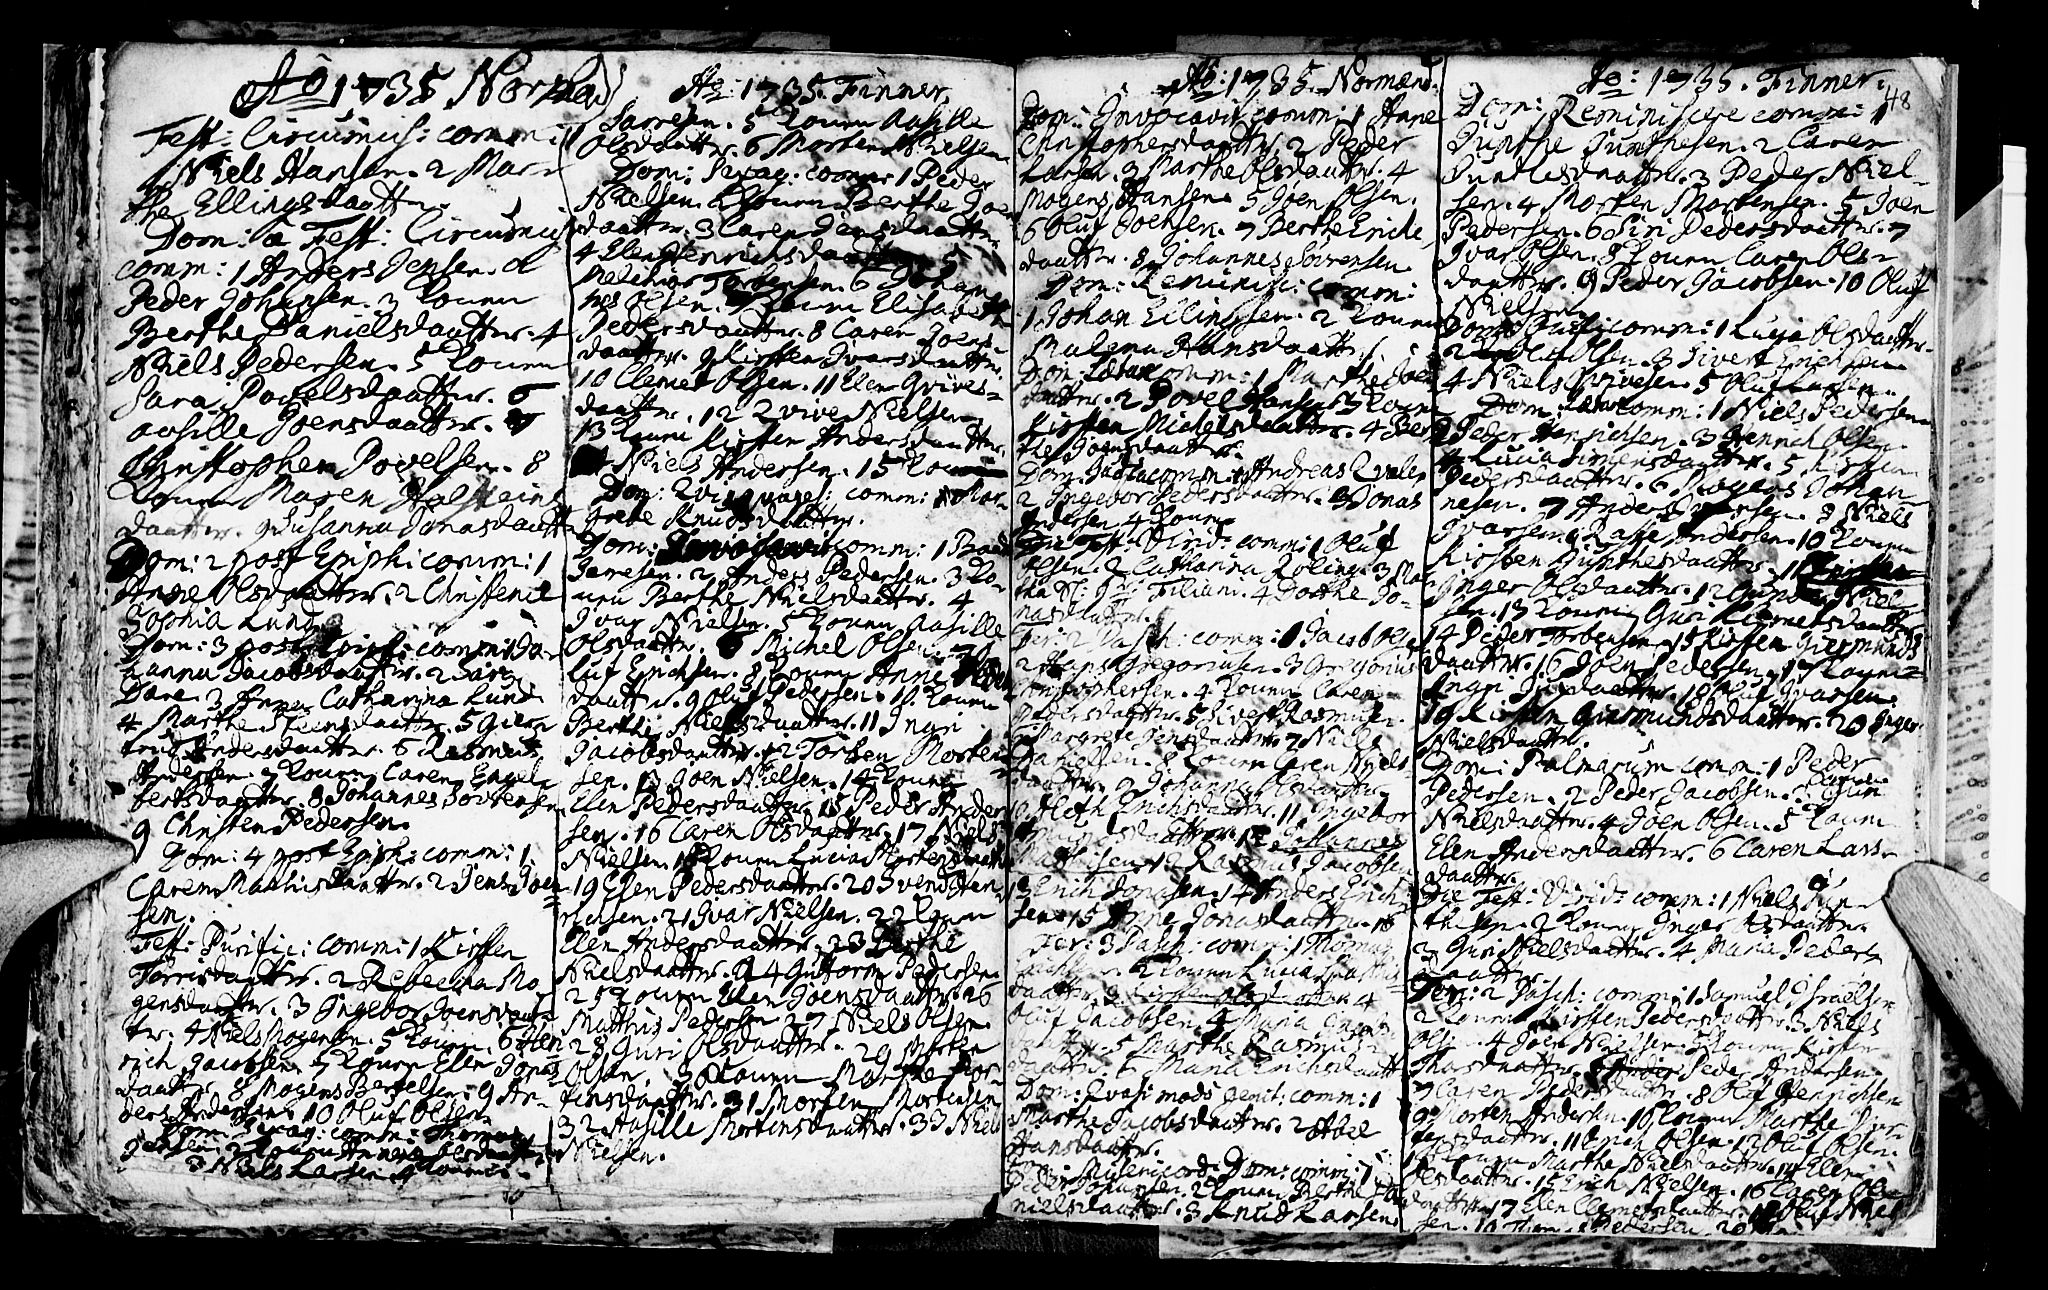 Aõ 1735 Normænd
Fest: Circumcis: comm: 1
Niels Hansen. 2 Mar
the Ellingsdaatter.
Dom: à Fest: Circumcis
comm: 1 Anders Jensen. 2
Peder Johansen. 3 Konen
Berthe Danielsdaatter. 4
Niels Pedersen. 5 Konen
Sara Povelsdaatter. 6
Aasille Joensdaatter. 7
Christopher Povelsen. 8
Konen Maren
daatter. 9 Susanna Jonasdaatter
Dom: 2 post Epiph: comm: 1
Anne Olsdaatter. 2 Christence
Sophia Lund.
Dom: 3 post Epiph: comm: 1
Jacobsdaatter. 2
3 Anna Catharina Lund
4 Marthe Steensdaatter. 5 Gier
trud Andersdaatter. 6 Rasmus
Andersen. 7 Konen Caren Engel
bertsdaatter. 8 Johannes Sørensen
9 Christen Pedersen.
Dom: 4 post Epiph: comm: 1
Caren Mathisdaatter. 2 Jens Joen
sen.
Fest: Purific: comm: 1 Kirsten
Torrisdaatter. 2 Rebecka Mo
gensdaatter. 3 Ingebor Joensdaat
ter. 4 Niels Mogensen. 5 Konen. 6 Hen
rich Jacobsen. 7 Konen Elen Jonas
daatter. 8 Mogens Bertelsen. 9 An
ders Andersen. 10 Oluf Olsen
comm: Thomas
Jensen. 2 Konen
3 Niels Larsen. 4 Konen.
Aõ: 1735. Finner
Larresen. 5 Konen Aasille
Olsdaatter. 6 Morten Nielsen
Dom: Sexag: comm: 1 Peder
Nielsen. 2 Konen Berthe Joen
daatter. 3 Caren Jensdaatter
4 Elen Henrichsdaatter. 5
Melchior Torbensen. 6 Johan
nes Olsen. 7 Konen Elisabeth
Pedersdaatter. 8 Caren Joens
daatter. 9 Kirsten Ivarsdaatter.
10 Clemet Olsen. 11 Elen Qvives
daatter. 12 Qvive Nielsen
13 Konen Kirsten Andersdaatter.
Niels Andersen. 15 Konen
Dom: Qvinquages: comm: 1 Mar
grete Knudsdaatter.
Dom: Invocavit comm: 1
2 Anders Pedersen. 3 Ko
nen Berthe Nielsdaatter. 4
Ivar Nielsen. 5 Konen Aasille
Olsdaatter. 6 Michel Olsen. 7 O
luf Erichsen. 8 Konen Anne
daatter. 9 Oluf Pedersen. 10 Konen
Berthe Nielsdaatter. 11 Ingri
Jacobsdaatter. 12 Torben Morten
sen. 13 Joen Nielsen. 14 Konen
Elen Pedersdaatter. 15 Peder Ander
sen. 16 Caren Olsdaatter. 17 Niels
Nielsen. 18 Konen Lucia Mortensdaatter
19 Elen Pedersdaatter. 20 Svend Hen
richsen. 21 Ivar Nielsen. 22 Konen
Elen Andersdaatter. 23 Berthe
Nielsdaatter. 24 Guttorm Pedersen
25 Konen Elen Joensdaatter. 26
Mathis Pedersen. 27 Niels Olsen.
28 Guri Olsdaatter. 29 Morten
Olsen. 30 Konen Marthe Mor
tensdaatter. 31 Morten Mortensen
32 Aasille Mortensdaatter. 33 Niels
Nielsen.
Aõ: 1735. Normænd
Dom: Invocavit comm: 1 Anne
Christophersdaatter. 2 Peder
Larsen. 3 Marthe Olsdaatter. 4
Mogens Hansen. 5 Joen Olsen.
6 Oluf Joensen. 7 Berthe Erichs
daatter. 8 Johannes Sørensen
Dom: Reminisc: comm:
1 Johan Ellingsen. 2 Konen
Malena Hansdaatter.
Dom: Lætare comm: 1 Marthe Joens
daatter. 2 Povel Hansen. 3 Konen
Kirsten Michelsdaatter. 4 Ber
the Joensdaatter.
Dom: Judica comm: 1 Andreas Qvalen
2 Ingebor Pedersdaatter. 3 Jonas
Andersen. 4 Konen
Die Fest: Virid: comm: 1 Oluf
Olsen. 2 Catharina Roling. 3 Ma
4 Dorthe Jo
nasdaatter.
Fer: 2 Pasch: comm: 1 Jacob Olsen
2 Hans Gregoriusen. 3 Gregorius
Christophersen. 4 Konen Caren
Pedersdaatter. 5 Sivert Rasmusen.
6 Margrete Jensdaatter. 7 Niels
Danielsen. 8 Konen Caren Niels
daatter. 9 Johanna Olsdaatter
10 Erichsdaatter. 11 Ingebor
daatter. 12 Johannes
13 Rasmus Jacobsen
Erich Jonasen. 14 Anders Erich
sen. 15 Anne Jonasdaatter. 16
Fer: 3 Pasch: comm: 1 Thomas
2 Konen Lucia
daatter. 3 4
Oluf Jacobsen. 4 Maria
5 Marthe Rasmus
daatter. 6 Maria Erichsdaatter
Dom: Qvasi modo genit: comm: 1
Marthe Jacobsdaatter. 2 Abel
Hansdaatter.
Dom: Misericord: Dom: comm: 1
Peder Johansen. 2 Konen Berthe Da
nielsdaatter. 3 Knud Larsen
Aõ: 1735. Finner.
48
Dom: Reminiscere comm: 1
Punthe Punthesen. 2 Caren
Punthesdaatter. 3 Peder Niel
sen. 4 Morten Mortensen. 5 Joen
Pedersen. 6 Siri Pedersdaatter. 7
Ivar Olsen. 8 Konen Caren Ols
daatter. 9 Peder Jacobsen. 10 Oluf
Nielsen.
Dom: Oculi comm: 1 Lucia Olsdaatter.
2 Oluf Olsen. 3 Sivert Erichsen
4 Niels Qvivesen. 5 Oluf Larsen
Dom: Lætare comm: 1 Niels Pedersen
2 Peder Henrichsen. 3 Henrich Olsen
4 Lucia Simensdaatter. 5 Kirsten
Pedersdaatter. 6 Mogens Johan
nesen. 7 Anders Iversen. 8 Niels
Ivarsen. 9 Lasse Andersen. 10 Konen
Kirsten Punthesdaatter. 11
Inger Olsdaatter. 12 Gunder Niel
sen. 13 Konen Guri Klemetsdaatter
14 Peder Torbensen. 15 Kirsten Giermunds
daatter. 16 Joen Pedersen. 17 Konen
Ingri daatter. 18 Oluf Ivarsen.
19 Kirsten Giermundsdaatter. 20 Inger
Nielsdaatter.
Dom: Palmarum comm: 1 Peder
Pedersen. 2 Peder Jacobsen. 3
Nielsdaatter. 4 Joen Olsen. 5 Konen
Elen Andersdaatter. 6 Caren Lars
daatter.
Die Fest: Virid: comm: 1 Niels Pun
thesen. 2 Konen Inger Olsdaatter.
3 Guri Nielsdaatter. 4 Maria Peders
daatter.
Fer: 2 Pasch: comm: 1 Samuel Israelsen
2 Konen Kirsten Pedersdaatter. 3 Niels
Olsen. 4 Joen Nielsen. 5 Konen Kirsten
daatter. 6 Peder Andersen
7 Caren Pedersdaatter. 8 Oluf Henrichsen
9 Morten Andersen. 10 Konen Marthe Mor
tensdaatter. 11 Erich Olsen. 12 Oluf Olsen.
13 Konen Marthe Nielsdaatter. 14 Elen
Olsdaatter. 15 Erich Nielsen. 16 Caren Ols
daatter. 17 Elen Clemetsdaatter. 18 Oluf Niel
sen. 19 Pedersen. 20